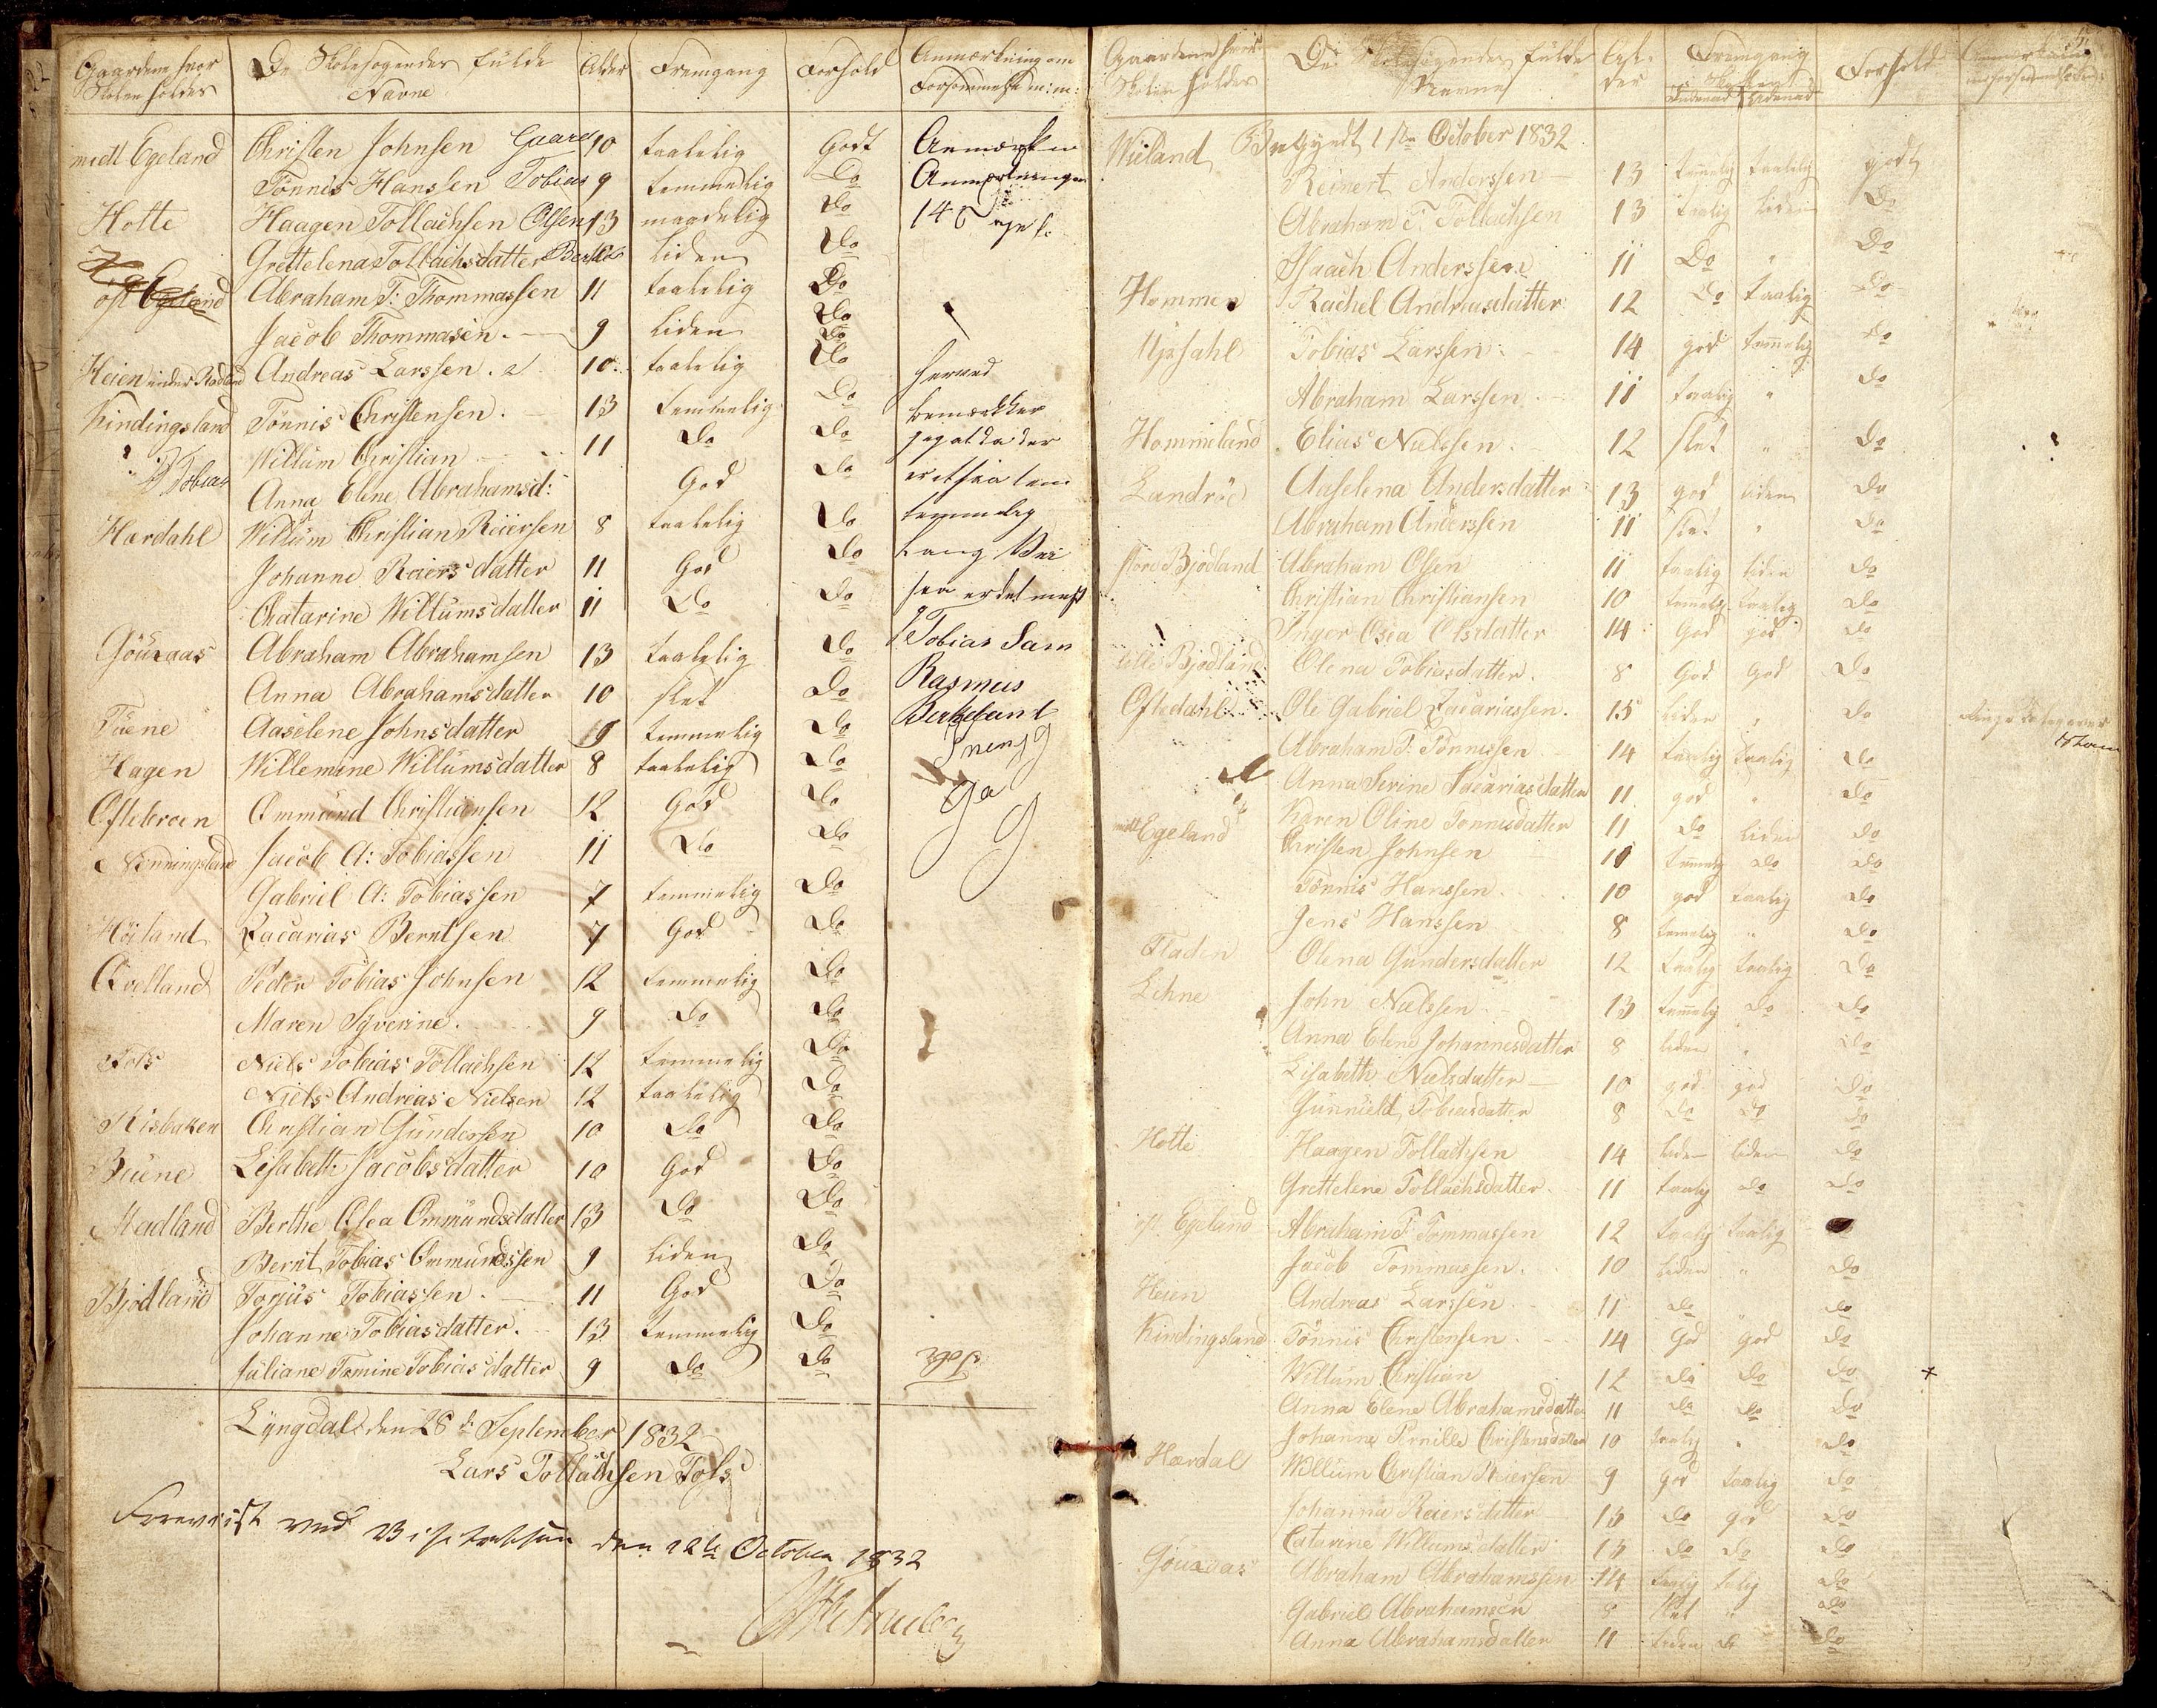 Gaardene hvor Skolen holdes De Skolesøgendes fulde Navne Alder Fremgang Forhold Anmærkning om Forsømmelse m:m:
midt Egeland Christen Johnsen Gaard 10 taalelig Godt Anmærk
Tönnis Hanssen Tobias 9 temmelig Do Anmærkningen
Hotte Haagen Tollachsen Olsen 13 maadelig Do 14
Grettelena Tollachsdatter liden Do
öst Egeland Abraham T: Thommassen 11 taalelig Do
Jacob Thommasen. 9 liden Do
Heien under Rodland Andreas Larssen. 10 taalelig Do herved
Kindingsland Tönnis Christensen. 13 temmelig Do bemærkker
Willum Christian 11 Do Do jeg at da der
Tobias Anna Elene Abrahamsd: God Do
Hardahl Willum Christian Reiersen 8 taalelig Do temmelig
Johanne Reiersdatter 11 God Do lang Vei
Chatarine Willumsdatter 11 Do Do saa er det mest
Göuraas Abraham Abrahamsen 13 taalelig Do Tobias Sam
Anna Abrahamsdatter 10 slet Do Rasmus
Tuene Aaselene Johnsdatter 9 temmelig Do
Hagen Willemine Willumsdatter 8 taalelig Do
Oftebroen Ommund Christiansen 12 God Do
Nenningsland Jacob A: Tobiassen 11 Do Do
Gabriel A: Tobiassen 7 temmelig Do
Höiland Zacarias Berntsen 7 God Do
Qvelland Peder Tobias Johnsen 12 temmelig Do
Maren Syverine. 9 Do Do
Fots Niels Tobias Tollachsen 12 temmelig Do
Niels Andreas Nielsen 12 taalelig Do
Risbaken Christian Gundersen 10 Do Do
Buene Lisabeth Jacobsdatter 10 God Do
Madland Berthe Olea Ommundsdatter 13 Do Do
Bernt Tobias Ommundssen 9 liden Do
Bjodland Torjus Tobiassen. 11 God Do
Johanne Tobiasdatter. 13 temmelig Do
Juliane Tomine Tobiasdatter 9 Do Do
Lyngdal den 28de September 1832
Lars Tollachsen Fots
Foreviist ved Visitatsen den 12te October 1832
Gaardene hvor Skolen holdes De Skolesøgendes fulde Navne Alder Fremgang i Skolen Indenad Udenad Forhold
Begyndt 1ste October 1832
Wieland Reinert Anderssen 13 temelig taalelig godt
Abraham T: Tollachsen 13 taalig liden Do
Isaach Anderssen 11 Do " Do
Hommen Rachel Andreasdatter 12 Do taalig Do
Mjesahl Tobias Larssen. 14 god temmelig do
Abraham Larssen 11 taalig " do
Hommeland Elias Nielssen. 12 slet " Do
Landröe Aaselena Andersdatter 13 god liden Do
Abraham Anderssen 11 slet " Do
store Bjodland Abraham Olsen 11 taalig liden Do
Christian Christiansen 10 temelig taalig Do
Inger Osea Olsdatter 14 God god do
lille Bjodland Olena Tobiasdatter. 8 God God Do
Oftedahl Ole Gabriel Zacariassen. 15 liden " Do
Abraham T: Tönnessen 14 taalig taalig do
Anna Serine Sacariasdatter 11 god " do
Karen Oline Tönnisdatter 11 Do liden do
midt Egeland Christen Johnsen 11 temelig do do
Tönnis Hanssen. 10 god taalig do
Jens Hanssen 8 temelig " do
Fladen Olena Gundersdatter 12 taalig taalig Do
Lehne John Nielssen 13 temelig do do
Anna Elene Johannesdatter 8 liden " do
Lisabeth Nielsdatter 10 god god do
Gunnild Tobiasdatter 8 do do do
Hotte Haagen Tollachsen 14 liden liden do
Grettelene Tollachsdatter. 11 taalig do do
öst Egeland Abraham T: Tommassen 12 taalig taalig
Jacob Tommassen. 10 liden " do
Heien Andreas Larssen. 11 do " do
Kindingsland Tönnis Christensen. 14 God god do
Willum Christian 12 do do do
Anna Elene Abrahamsdatter 11 do do do
Johanne Pernille Christensdatter 10 taalig " do
Hardal Willum Christian Reiersen 9 god taalig do
Johanna Reiersdatter 13 do god do
Catarine Willumsdatter 13 do do do
Göuraas Abraham Abrahamssen 14 taalig talig do
Gabriel Abrahamsen 8 slet " do
Anna Abrahamsdatter 11 liden do do